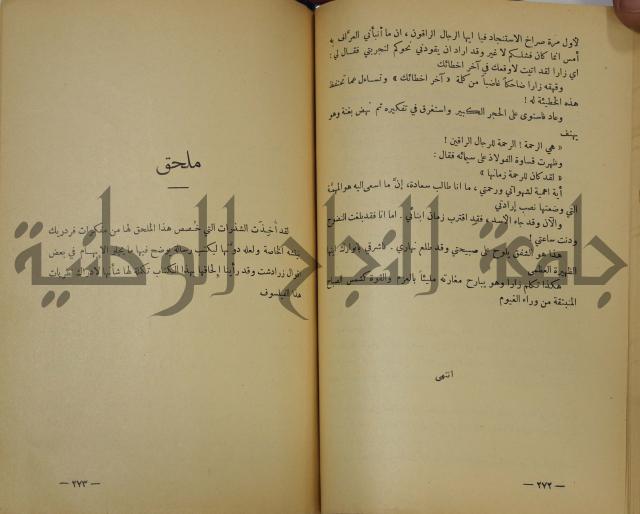 لأول مرة صراخ الاستنجاد فيا ايها الرجال الراقون ، ان ما أنبأني العرّاف به
أمس انما كان فشلكم لا غير وقد اراد ان يقودني نحوكم لتجربتي فقال لي :
اي زارا لقد اتيت لاوقعك في آخر اخطائك
وقهقه زارا ضاحكاً غاضباً من كلة « آخر اخطائك » وتساءل عما تحتفظ
هذه الخطيئة له !
وعاد فاستوى على الحجر الكبير واستغرق في تفكيره ثم نهض بغتة وهو
يهتف
« هي الرحمة ! الرحمة للرجال الراقين !
وظهرت قساوة الفولاذ على سيمائه فقال :
« لقد كان للرحمة زمانها »
أية اهمية لشهواتي ورحمتي ، ما انا طالب سعادة، إنَّ ما اسعى اليه هو المهمّة
التي وضعتها نصب إرادتي
والآن وقد جاء الاسد، فقد اقترب زمان ابنائي . اما انا فقد بلغت النضوج
ودنت ساعتي
هذا هو الشفق يلوح على صبيحتي وقد طلع نهاري . فاشرقي بانوارك ايها
الظهيرة العظمى
هكذا تكلم زارا وهو يبارح مغارته مليئاً بالعزم والقوة كشمس الصباح
المنبثقة من وراء الغيوم
انتهى
— ٢٧٢ —
ملحق
لقد أُخِذَت الشذرات التي خُصص هذا الملحق لها من مفكرات فردريك
نيتشه الخاصة ولعله دوّنها ليكتب رسالة يوضح فيها ما يجلو الابهام في بعض
اقوال زرادشت وقد رأينا إلحاقها بهذا الكتاب تكملة لها شأنها لادراك نظريات
هذا الفيلسوف
— ٢٧٣ —
جامعة النجاح الوطنية